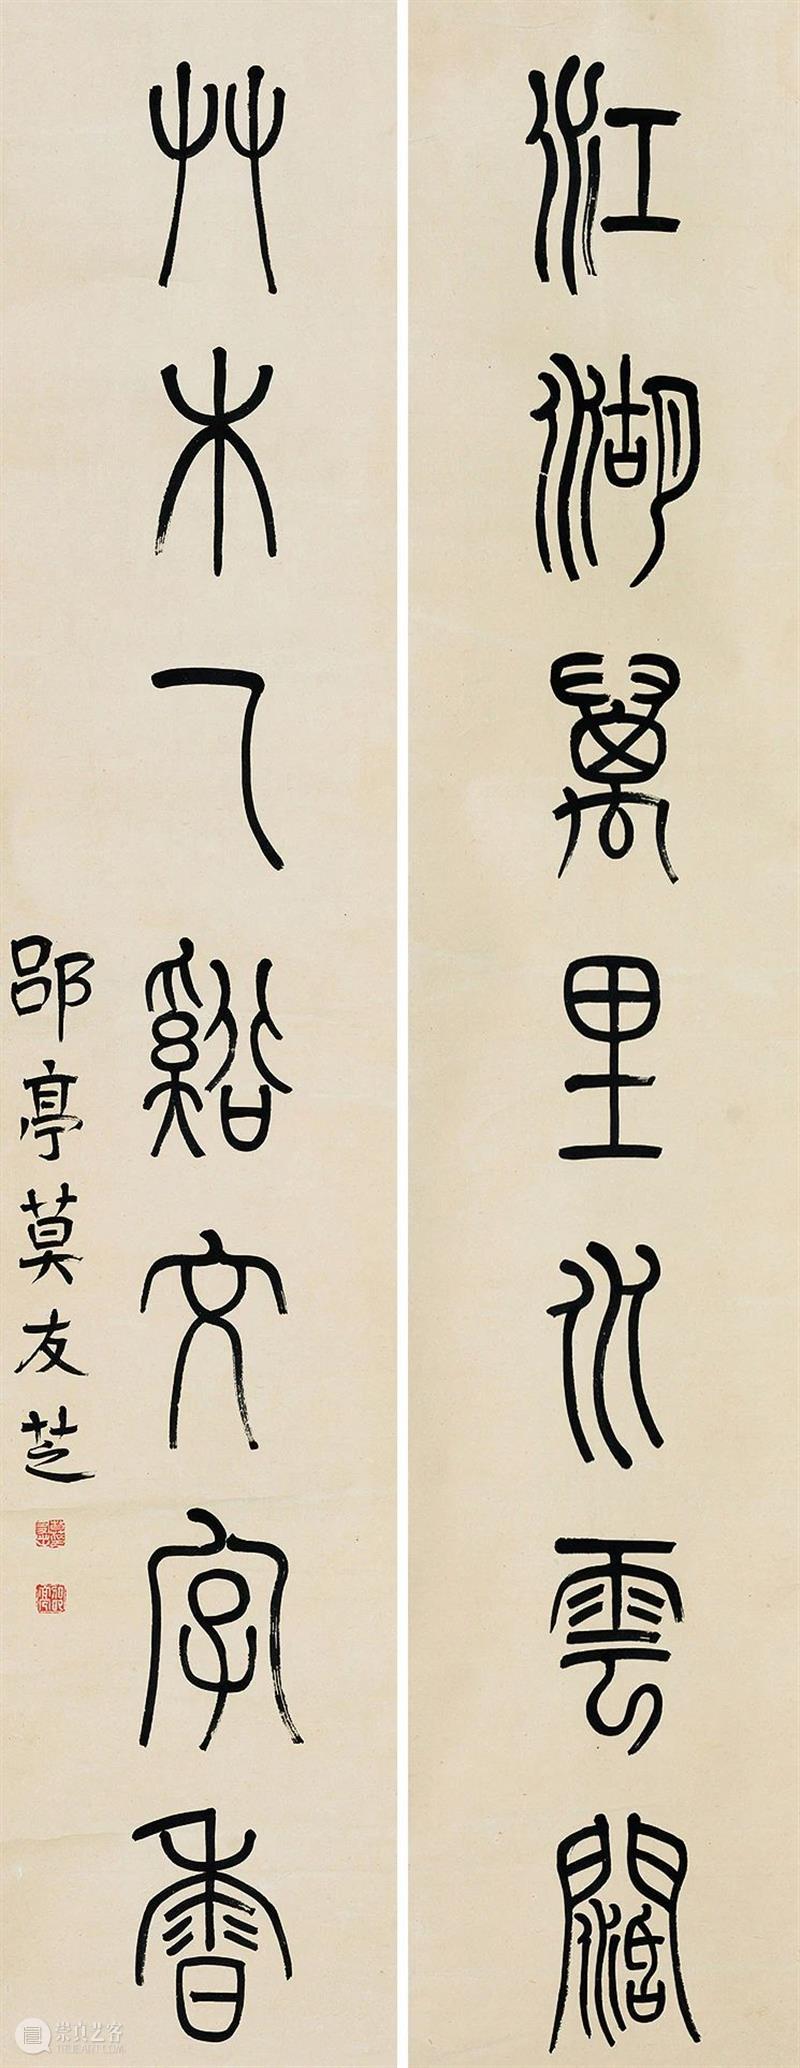 江湖萬里水雲闊
艸木一谿文字香
郘亭莫友芝
崇真艺客
TRUEART.COM